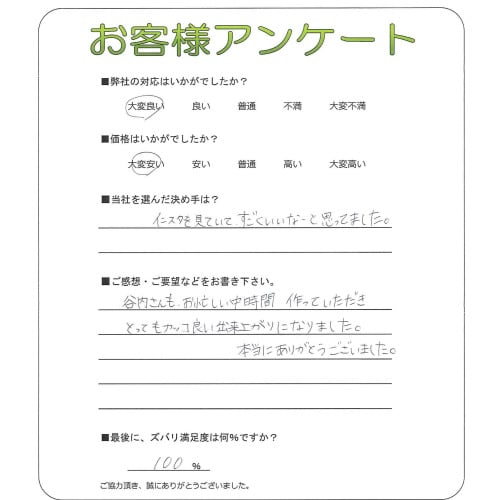 お客様アンケート
■弊社の対応はいかがでしたか？
大変良い 良い 普通 不満 大変不満
■価格はいかがでしたか？
大変安い 安い 普通 高い 大変高い
■当社を選んだ決め手は？
インスタを見ていて、すごくいいなーと思ってました。
■ご感想・ご要望などをお書き下さい。
谷内さんも、お忙しい中時間 作っていただき
とってもカッコ良い出来上がりになりました。
本当にありがとうございました。
■最後に、ズバリ満足度は何％ですか？
100 ％
ご協力頂き、誠にありがとうございました。